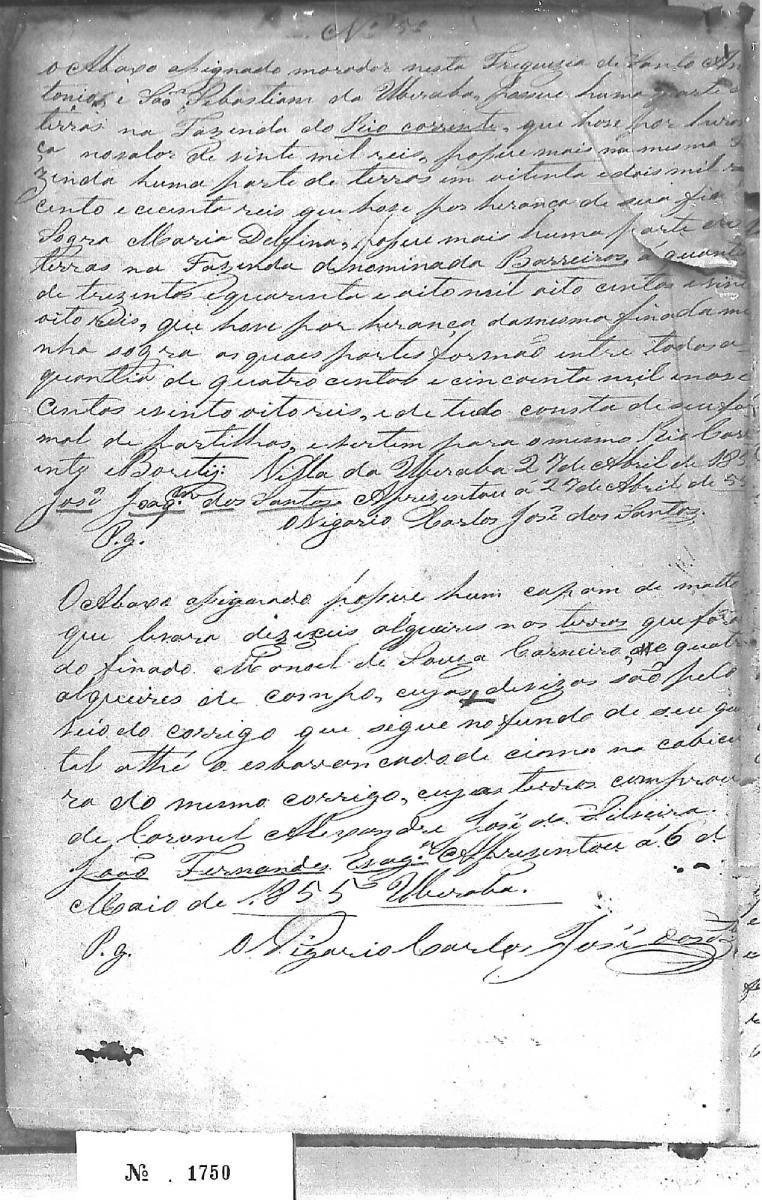 Nº 5º
O Abaxo asignado morador nesta Freguezia de Santo An
tonio, e São Sebastiam da Uberaba, posue huma parte de
terras na Fazenda do Rio corrente, que hove por heran
ça no valor de vinte mil reis, posue mais na mesma
zenda huma parte de terras em oitenta e dois mil
cento e cecenta reis que hove por herança de sua
Sogra Maria Delfina, e posue mais huma parte de
terras na Fazenda denominada Barreiros, á quantia
de trezentos e quarenta e oito mil oito centos e vinte
oito reis, que hove por herança da mesma finada mi
nha sogra as quaes partes formão entre todas a
quantia de quatro centos e cincoenta mil e nove
centos e vinto oito reis, e de tudo consta de seu for
mal de partilhas, e vertem para o mesmo Rio Corr
ente e Villa da Uberaba 27 de Abril de 185
José Joaqm dos Santos. Apresentou á 27 de Abril de 55
O Vigario Carlos José dos Santos.
P.g.
O Abaxo asignado posue hum capam de matto
que levara dezeceis alqueires nas terras que forão
do finado Manoel de Souza Carneiro, e quatro
alqueires de campo, cujas devizas são pelo
veio do corrigo que segue no fundo de seu quin
tal athé o esbarrancado de cima na cabicei
ra do mesmo corrigo, cujas terras comprou
de Coronel Alexandre José da Silveira.
João Fernandes Apresentou á 6 de
Maio de 1855 Uberaba.
P.g. O Vigario Carlos José dos Santos
Nº 1750